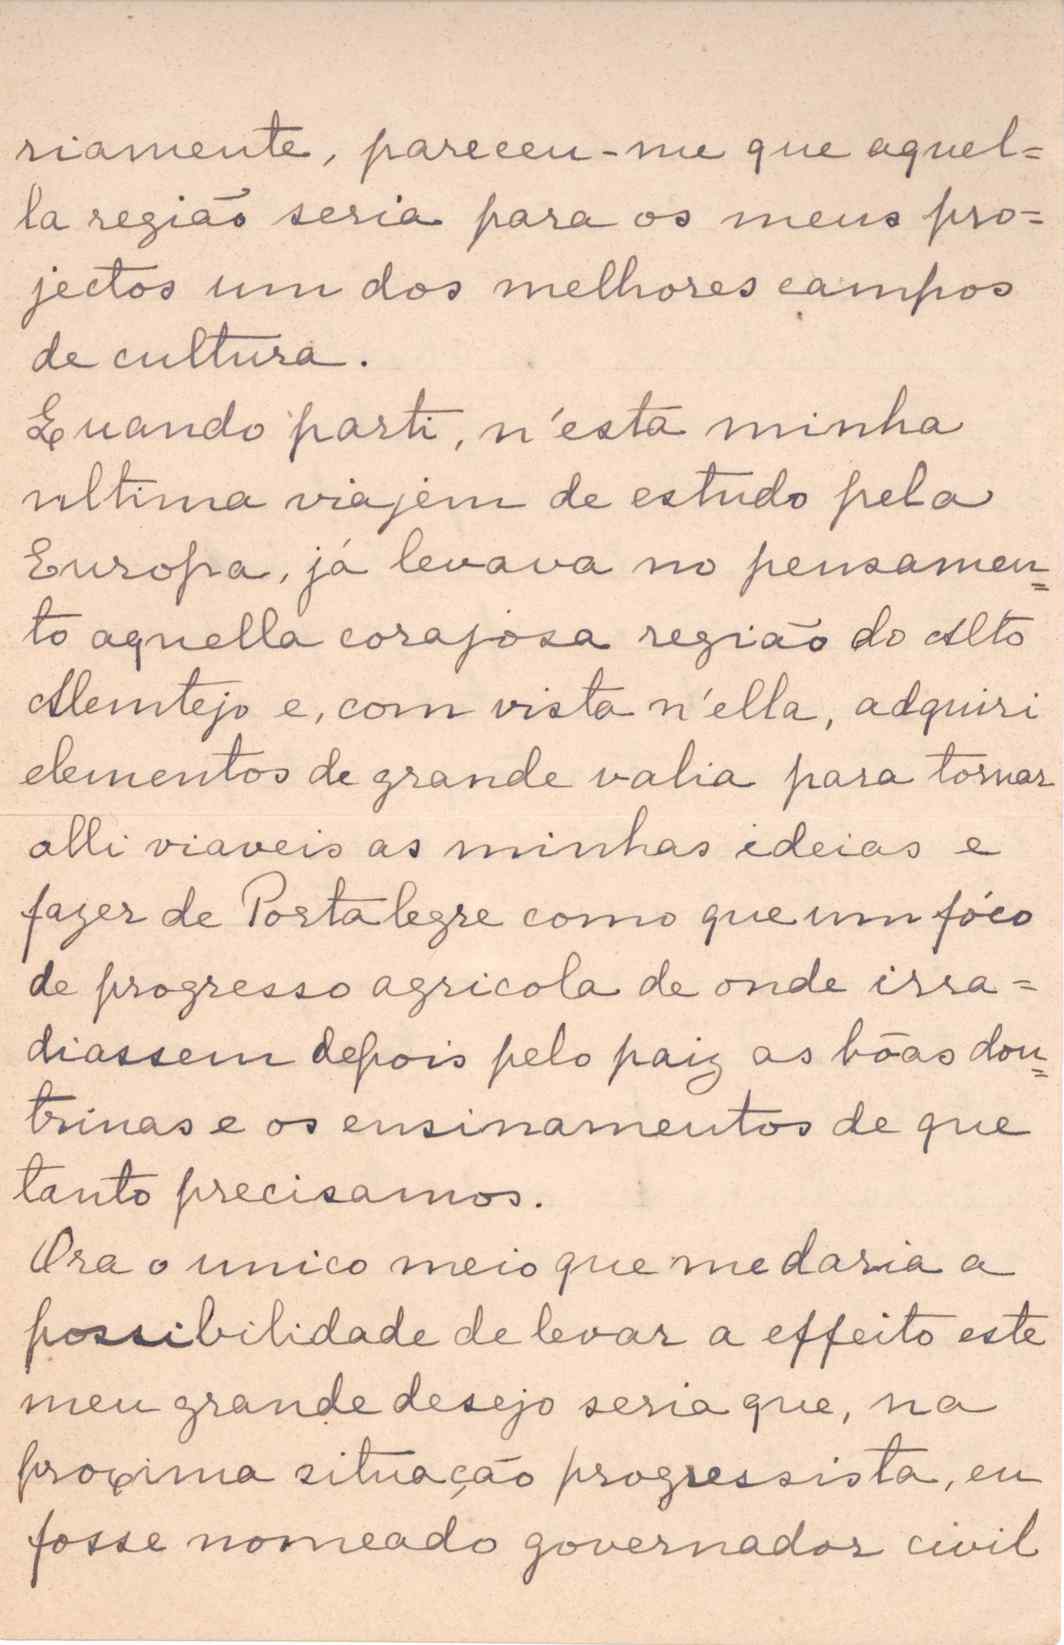 riamente, pareceu-me que aquel=
la região seria para os meus pro=
jectos um dos melhores campos
de cultura.
Quando parti, n'esta minha
ultima viajem de estudo pela
Europa, já levava no pensamen=
to aquella corajosa região do Alto
Alemtejo e, com vista n'ella, adquiri
elementos de grande valia para tornar
alli viaveis as minhas ideias e
fazer de Portalegre como que um fóco
de progresso agricola de onde irra=
diassem depois pelo paiz as bōas dou=
trinas e os ensinamentos de que
tanto precisamos.
Ora o unico meio que me daria a
possibilidade de levar a effeito este
meu grande desejo seria que, na
proxima situação progressista, eu
fosse nomeado governador civil